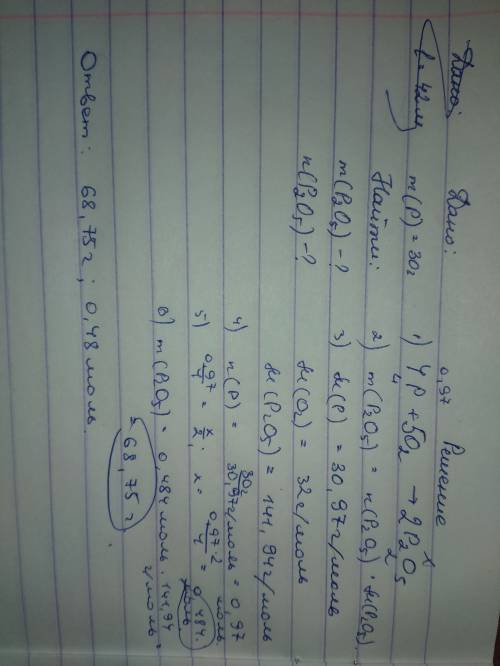 Дано:
Дано:
m(P) = 30г
Найти:
m(P2O5) - ?
n(P2O5) - ?
Решение
0,97 x
1) 4P + 5O2 → 2P2O5
4 2
2) m(P2O5) = n(P2O5) · M(P2O5)
3) M(P) = 30,97г/моль
M(O2) = 32г/моль
M(P2O5) = 141,94г/моль
4) n(P) = 30г / 30,97г/моль = 0,97 моль
5) 0,97/4 = x/2; x = 0,97·2/4 = 0,484 моль
6) m(P2O5) = 0,484 моль · 141,94 г/моль =
= 68,75г
Ответ: 68,75г; 0,48 моль.